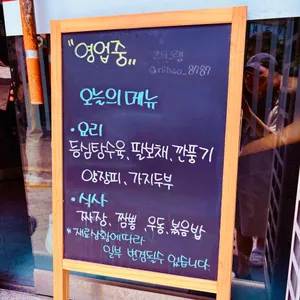 "영업중"
오늘의 메뉴
· 요리
등심탕수육, 팔보채, 깐풍기
양장피, 가지두부
· 식사
짜장, 짬뽕, 우동, 볶음밥
* 재료상황에따라
일부 변경될수 있습니다.